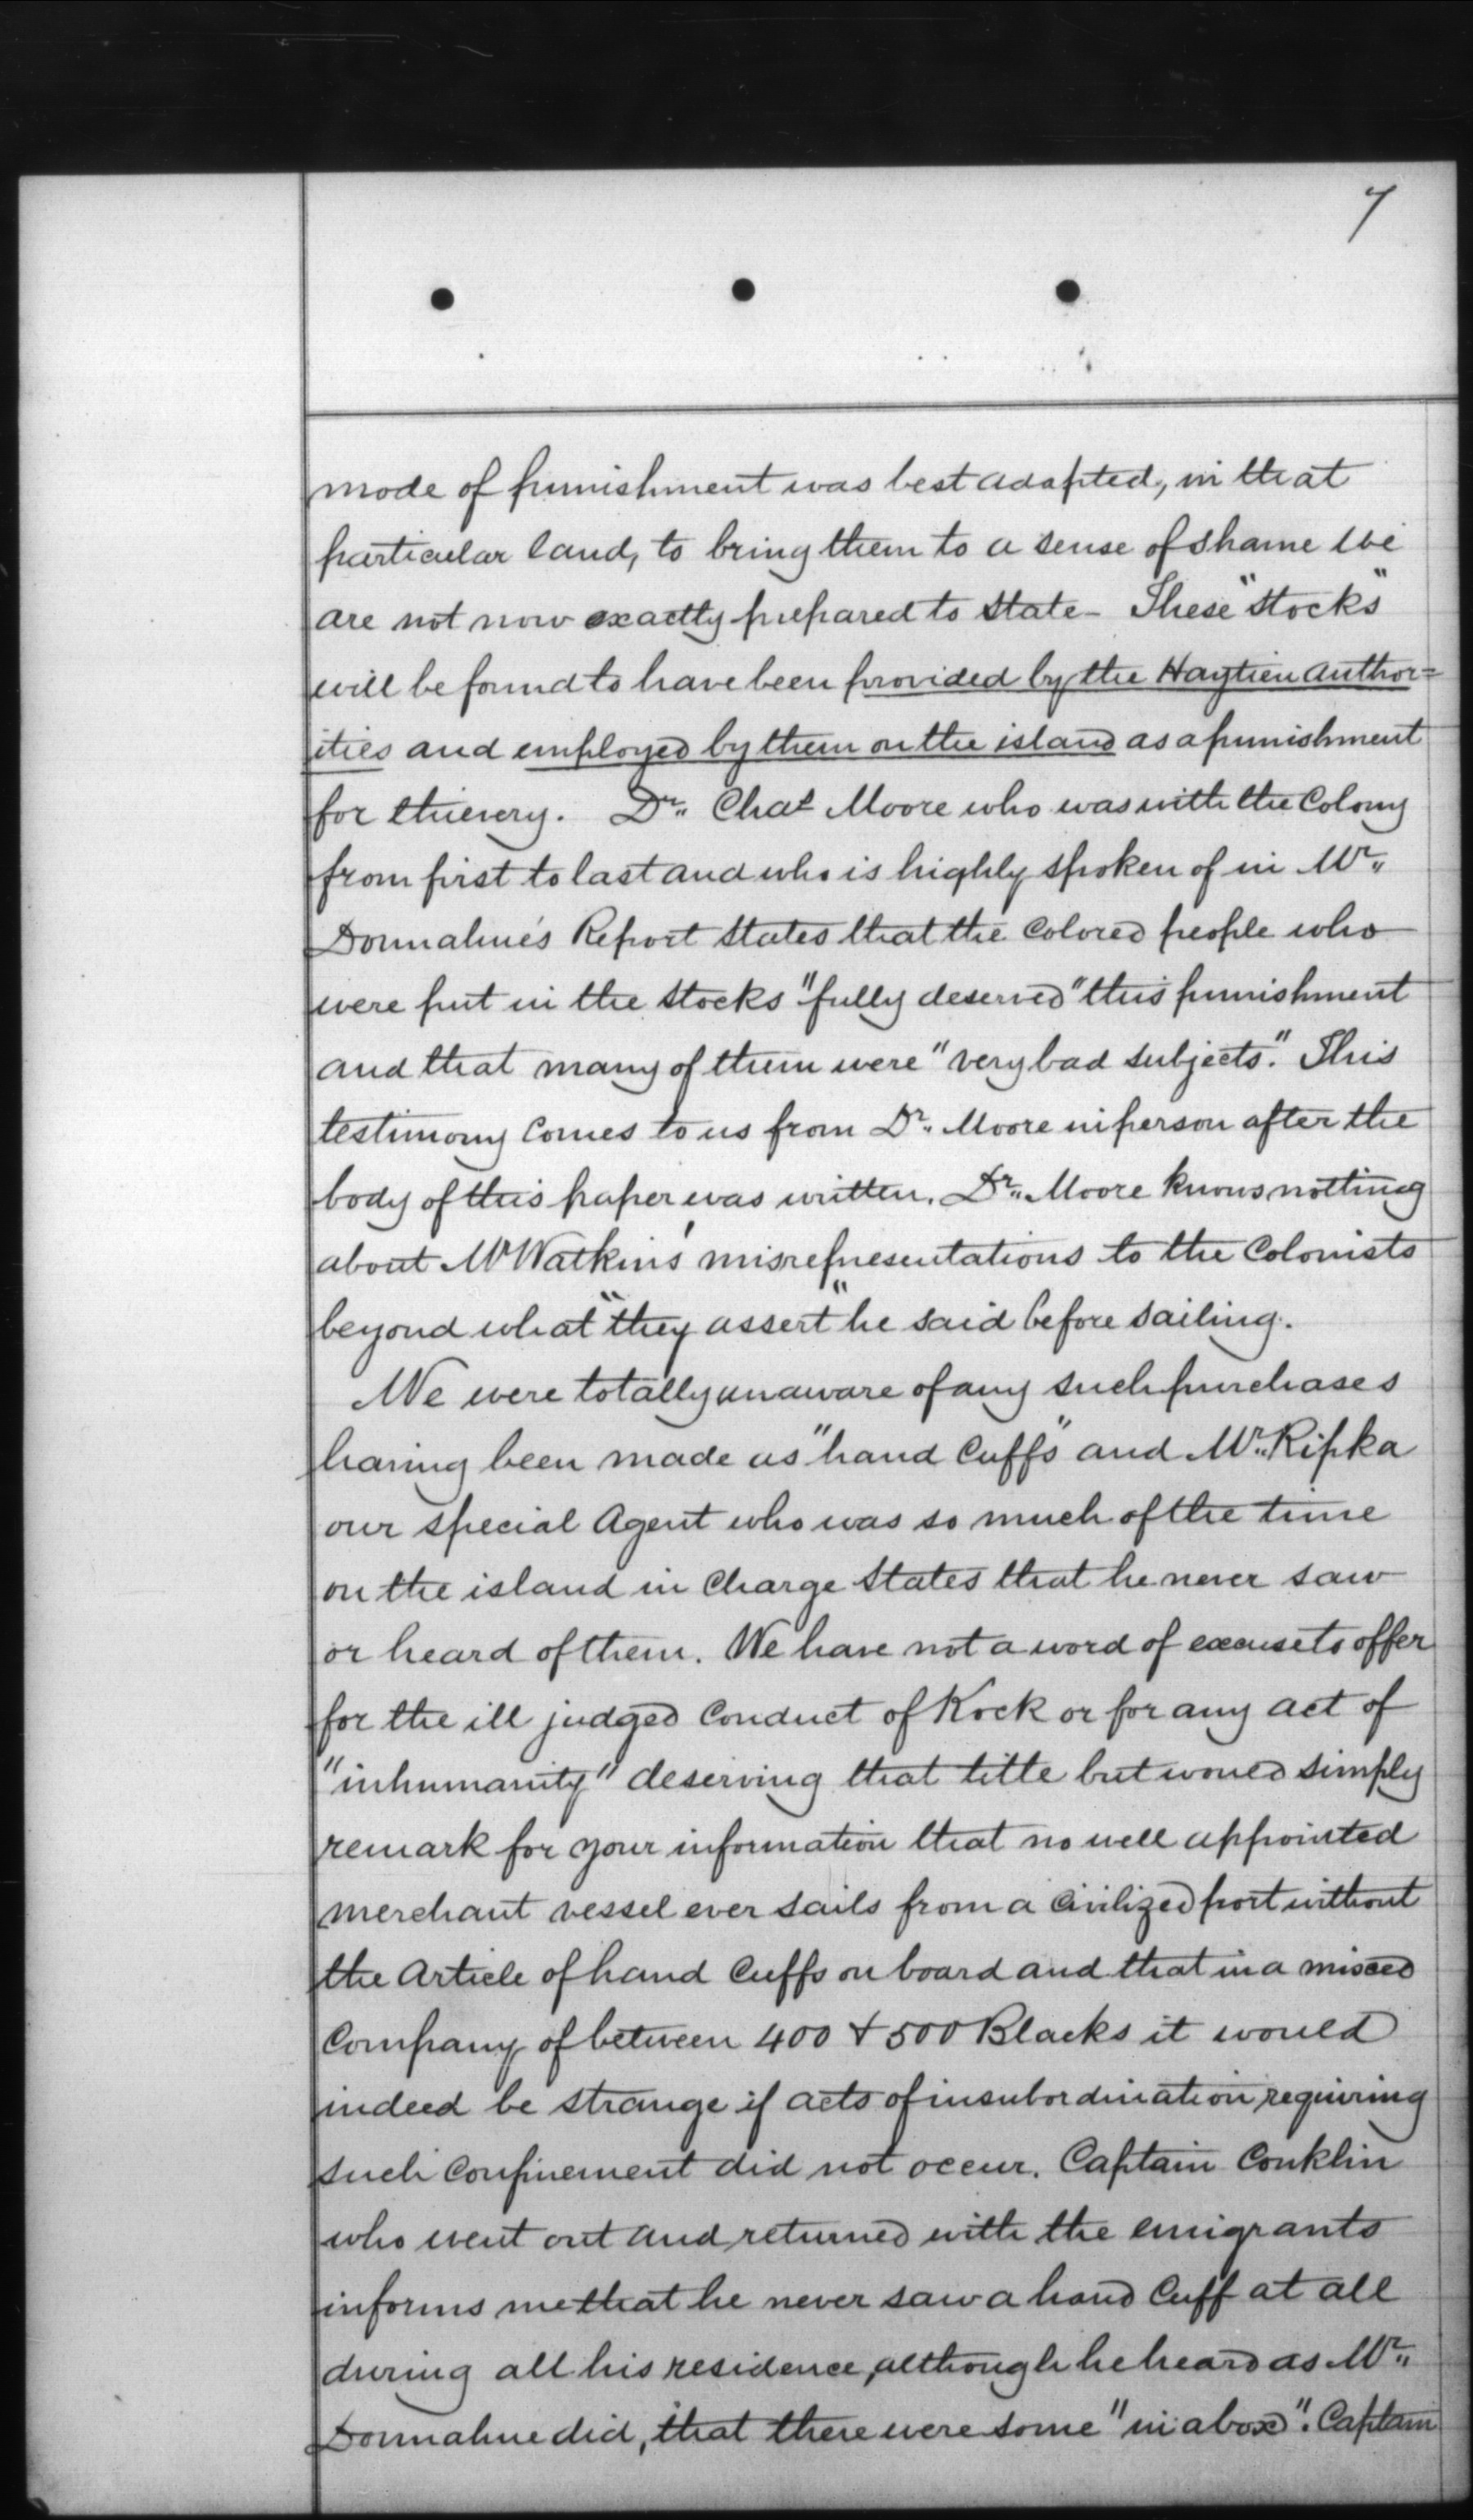 7
mode of punishment was best adapted, in that
particular land, to bring them to a sense of shame we
are not now exactly prepared to state - These "stocks"
will be found to have been provided by the Haytien Author=
ities and employed by them on the island as a punishment
for thievery. Dr. Chas Moore who was with the Colony
from first to last and who is highly spoken of in Mr.
Donnahue's Report states that the Colored people who
were put in the stocks "fully deserved" this punishment
and that many of them were "very bad subjects." This
testimony Comes to us from Dr. Moore in person after the
body of this paper was written. Dr. Moore knows nothing
about Mr Watkins' misrepresentations to the Colonists
beyond what "they assert" he said before sailing.
We were totally unaware of any such purchases
having been made as "hand Cuffs" and Mr. Ripka
our special Agent who was so much of the time
on the island in Charge states that he never saw
or heard of them. We have not a word of excuse to offer
for the ill judged Conduct of Kock or for any act of
"inhumanity" deserving that title but would simply
remark for your information that no well appointed
merchant vessel ever sails from a Civilized port without
the Article of hand Cuffs on board and that in a mixed
Company of between 400 & 500 Blacks it would
indeed be strange if acts of insubordination requiring
such Confinement did not occur. Captain Conklin
who went out and returned with the emigrants
informs me that he never saw a hand Cuff at all
during all his residence, although he heard as Mr.
Donnahue did, that there were some "in a box". Captain